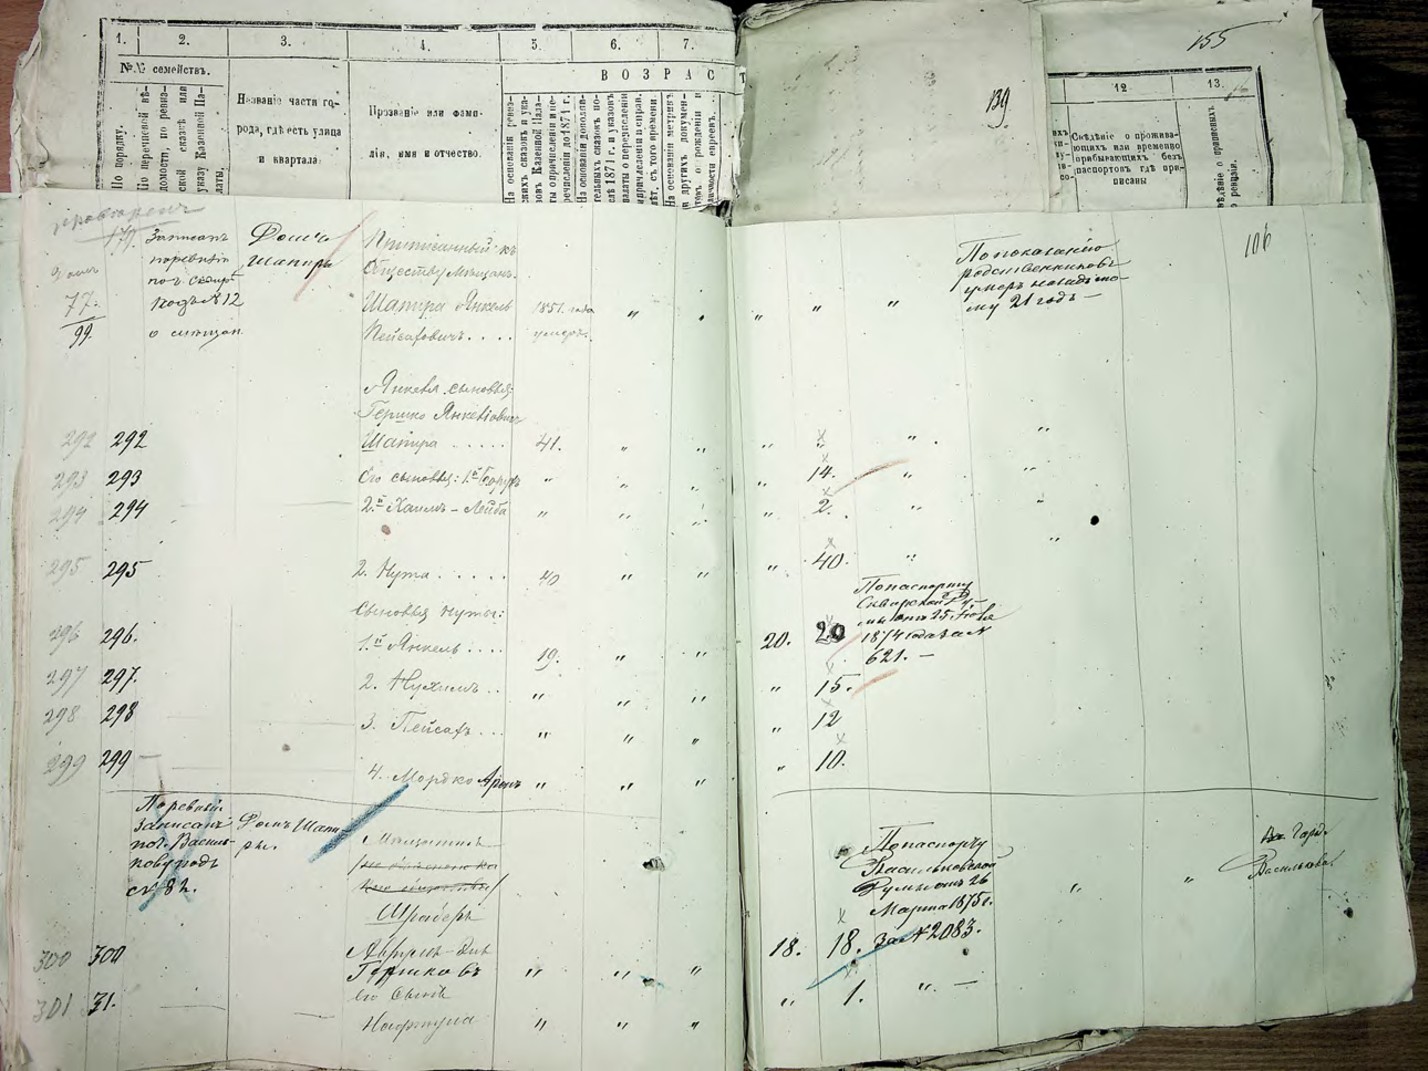 155
139
1.
2.
3.
4.
5.
6.
7.
12
13.
№№ семействъ.
ВОЗРАСТ
По порядку.
По перечневой вѣ-
домости, по ревиз-
ской сказкѣ или
указу Казенной Па-
латы.
Названіе части го-
рода, гдѣ есть улица
и квартала
Прозваніе или фами-
лія, имя и отчество.
На основаніи ревиз-
скихъ сказокъ и ука-
зовъ Казенной Пала-
ты о причисленіи и пе-
речисленіи до 1871 г.
На основаніи дополни-
тельныхъ сказокъ по-
слѣ 1871 г. и указовъ
палаты о перечисленіи
причисленіи и справ.
лѣт, съ того времени.
На основаніи метрик
и другихъ докумен-
товъ о рожденіи и
личности евреевъ.
Свѣдѣніе о прожива-
ющихъ или временно
прибывающихъ безъ
паспортовъ гдѣ при-
писаны
106
179.
77.
99.
Записанъ
поревизіи
по г. Сквир
подъ №12
о мѣщан
Домъ
Шапиры
Приписанный къ
Обществу Мѣщанъ.
Шапира Янкель
Пейсаховичъ . . . .
1851. года
умеръ.
" " " " "
По показанію
родственниковъ
умеръ назадъ то-
му 21 годъ —
Янкеля сыновья:
Гершко Янкелiовичъ
292 292 Шапира . . . . . 41. " " " " " . "
293 293 Его сыновья: 1.й Борухъ " " " " 14. " "
294 294 2.й Хаимъ - Лейба " " " " 2. " "
295 295 2. Нута . . . . . 40 " " " 40. " "
Сыновья Нуты:
296 296. 1.й Янкель . . . . 19. " " 20. 20
По паспорту
Сквирской
1874 года за №
621. —
297 297. 2. Нухимъ . . " " " " 15.
298 298 3. Пейсахъ . . . " " " " 12
299 299 — 4. Мордко Аронъ " " " " 10.
Поревизіи
Записанъ
по г. Василь-
кову подъ
ст 82.
Домъ Шапи-
ры.
Мѣщанинъ
Шрайеръ
По паспорту
Васильковской
Думы отъ 26
Марта 1875 г.
За № 2083.
" "
Гор.
Василькова
300 300 Гершковъ " " " 18. 18.
Его Сынъ
301 31. Нафтула " " " " 1. " —